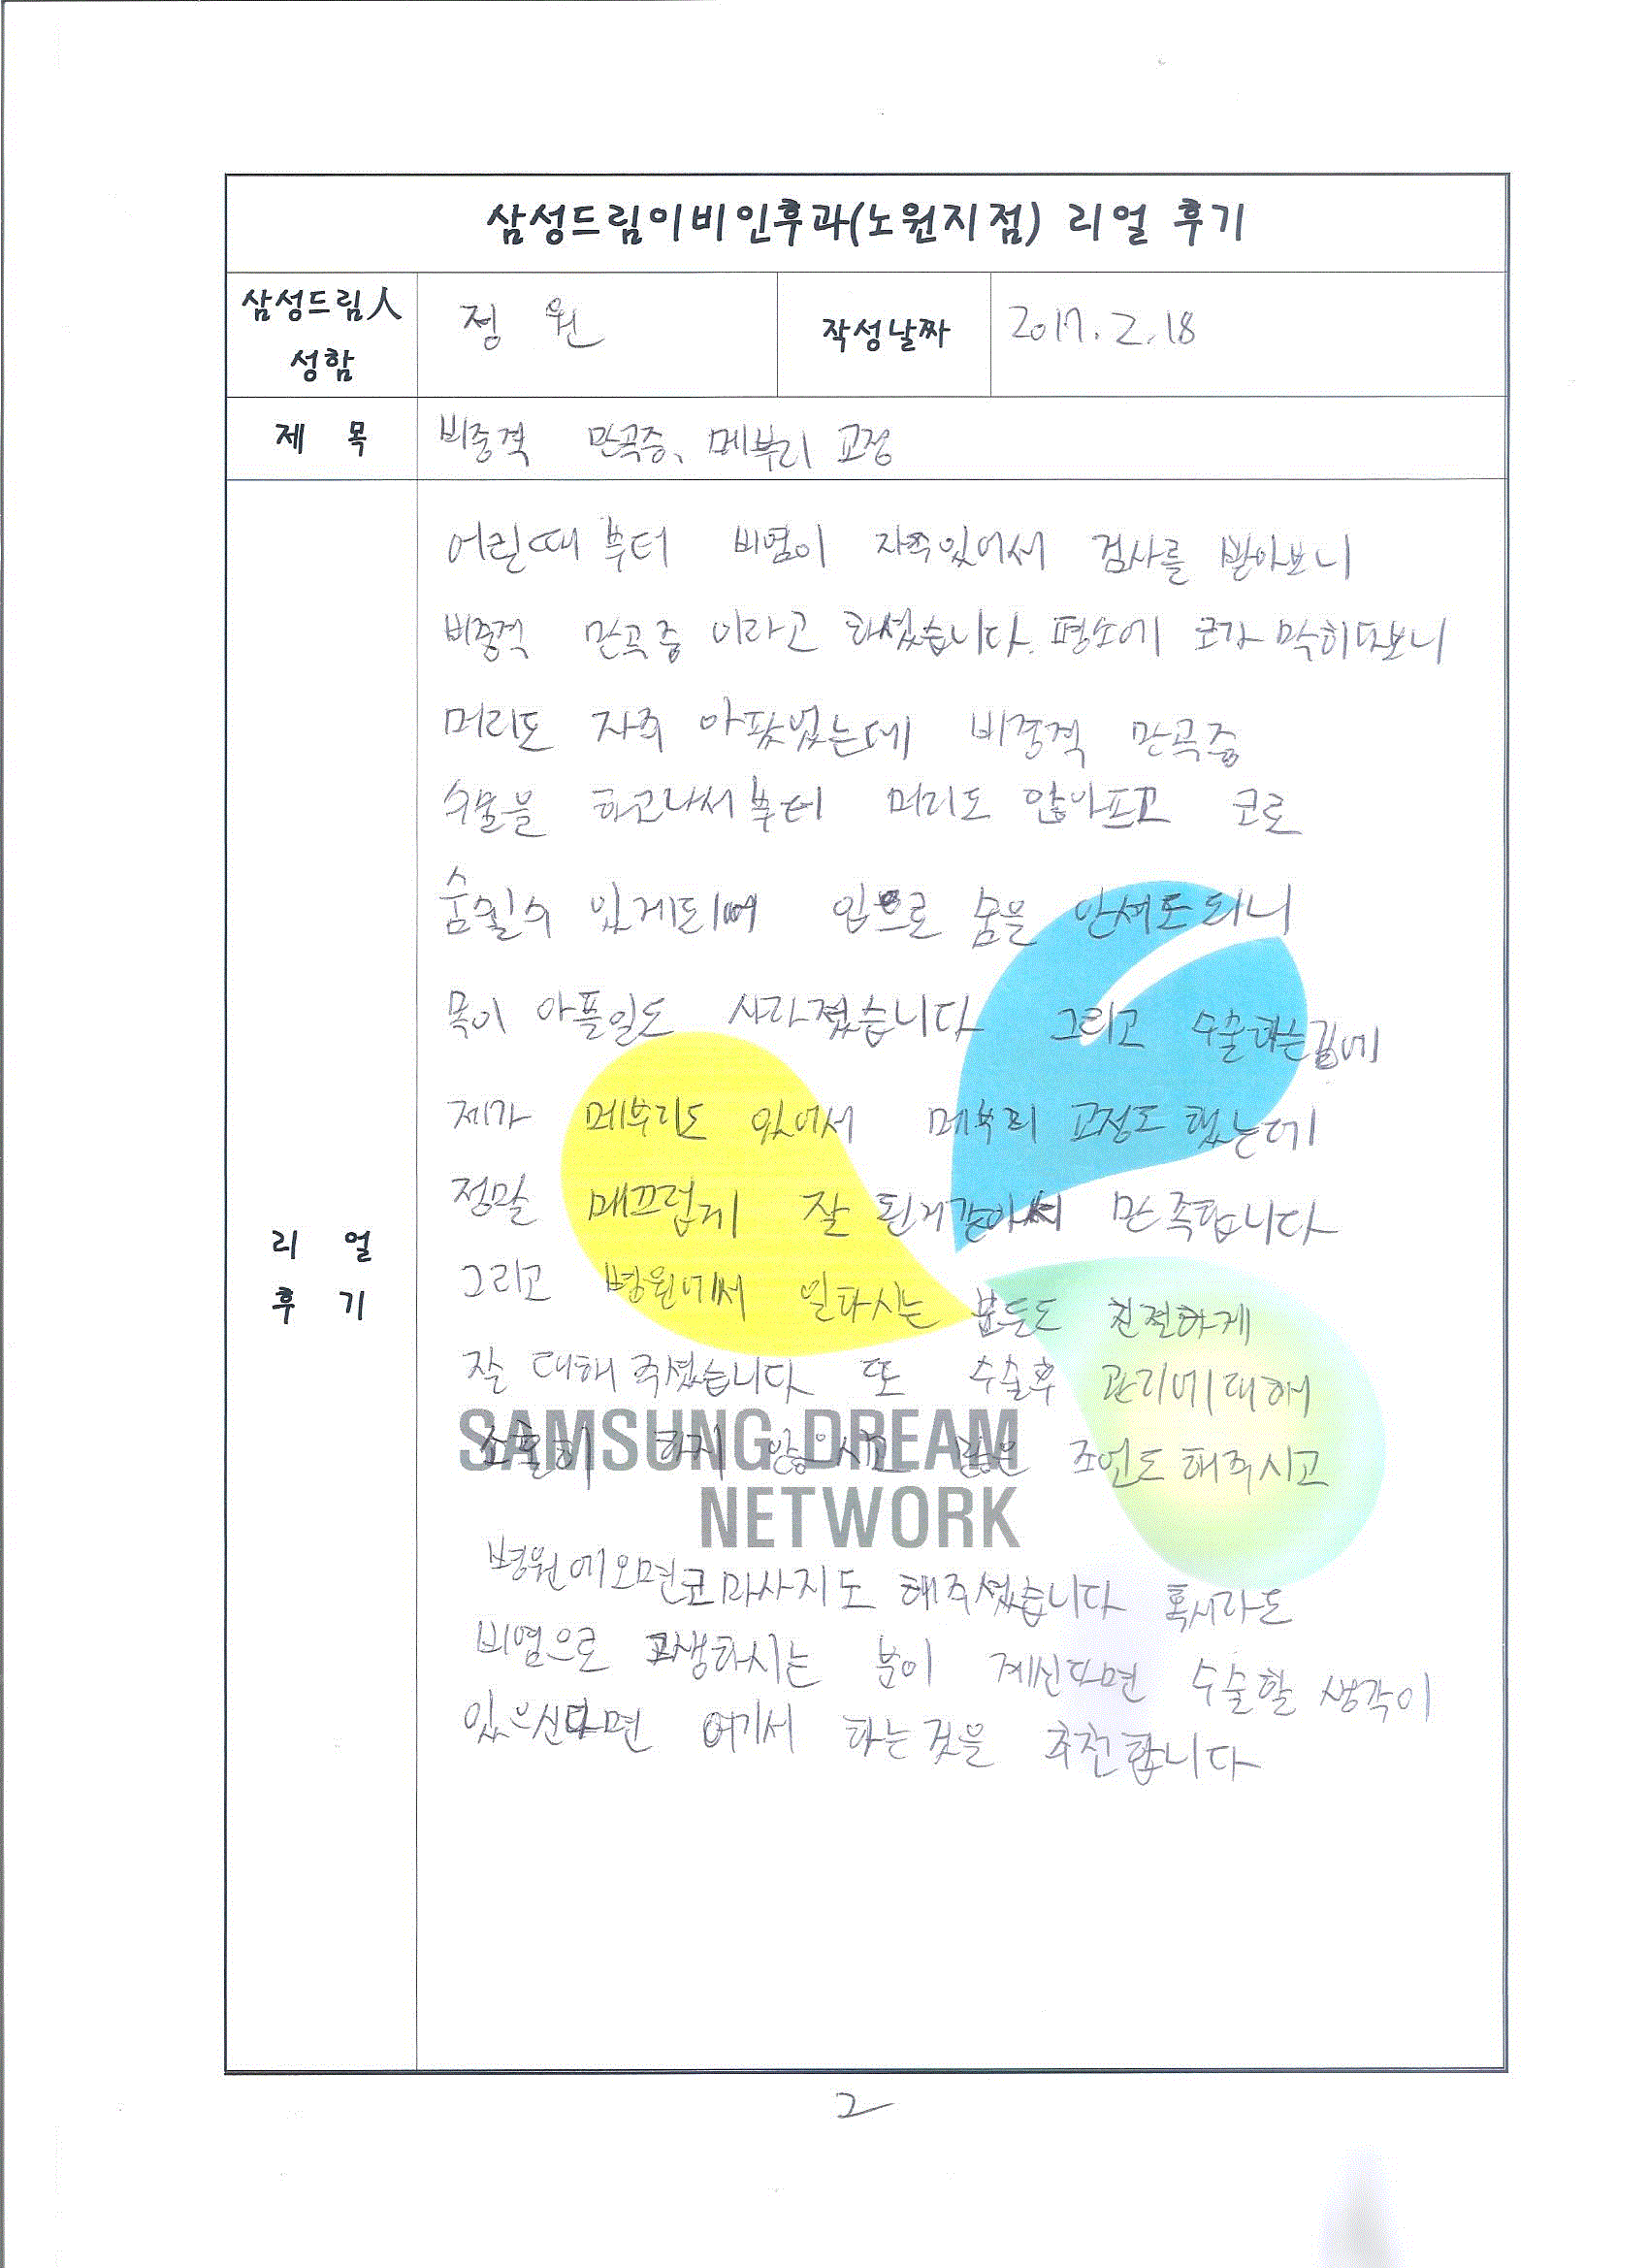 삼성드림이비인후과(노원지점) 리얼 후기
삼성드림人 성함
정 원
작성날짜
2017. 2. 18
제 목
비중격 만곡증, 메부리 교정
리 얼 후 기
어린때부터 비염이 자주있어서 검사를 받아보니
비중격 만곡증 이라고 하셨습니다. 평소에 코가 막히다보니
머리도 자주 아팠었는데 비중격 만곡증
수술을 하고나서부터 머리도 않아프고 코로
숨쉴수 있게되어 입으로 숨을 안셔도 되니
목이 아플일도 사라졌습니다 그리고 수술하는김에
제가 메부리도 있어서 메부리 교정도 했는데
정말 매끄럽게 잘 된거같아서 만족합니다
그리고 병원에서 일하시는 분들도 친절하게
잘 대해 주셨습니다 또 수술후 관리에대해
소홀히 하지 않으시고 많은 조언도 해주시고
SAMSUNG DREAM
NETWORK
병원에오면 코마사지도 해주셨습니다 혹시라도
비염으로 고생하시는 분이 계신다면 수술할 생각이
있으신다면 여기서 하는것을 추천합니다
2